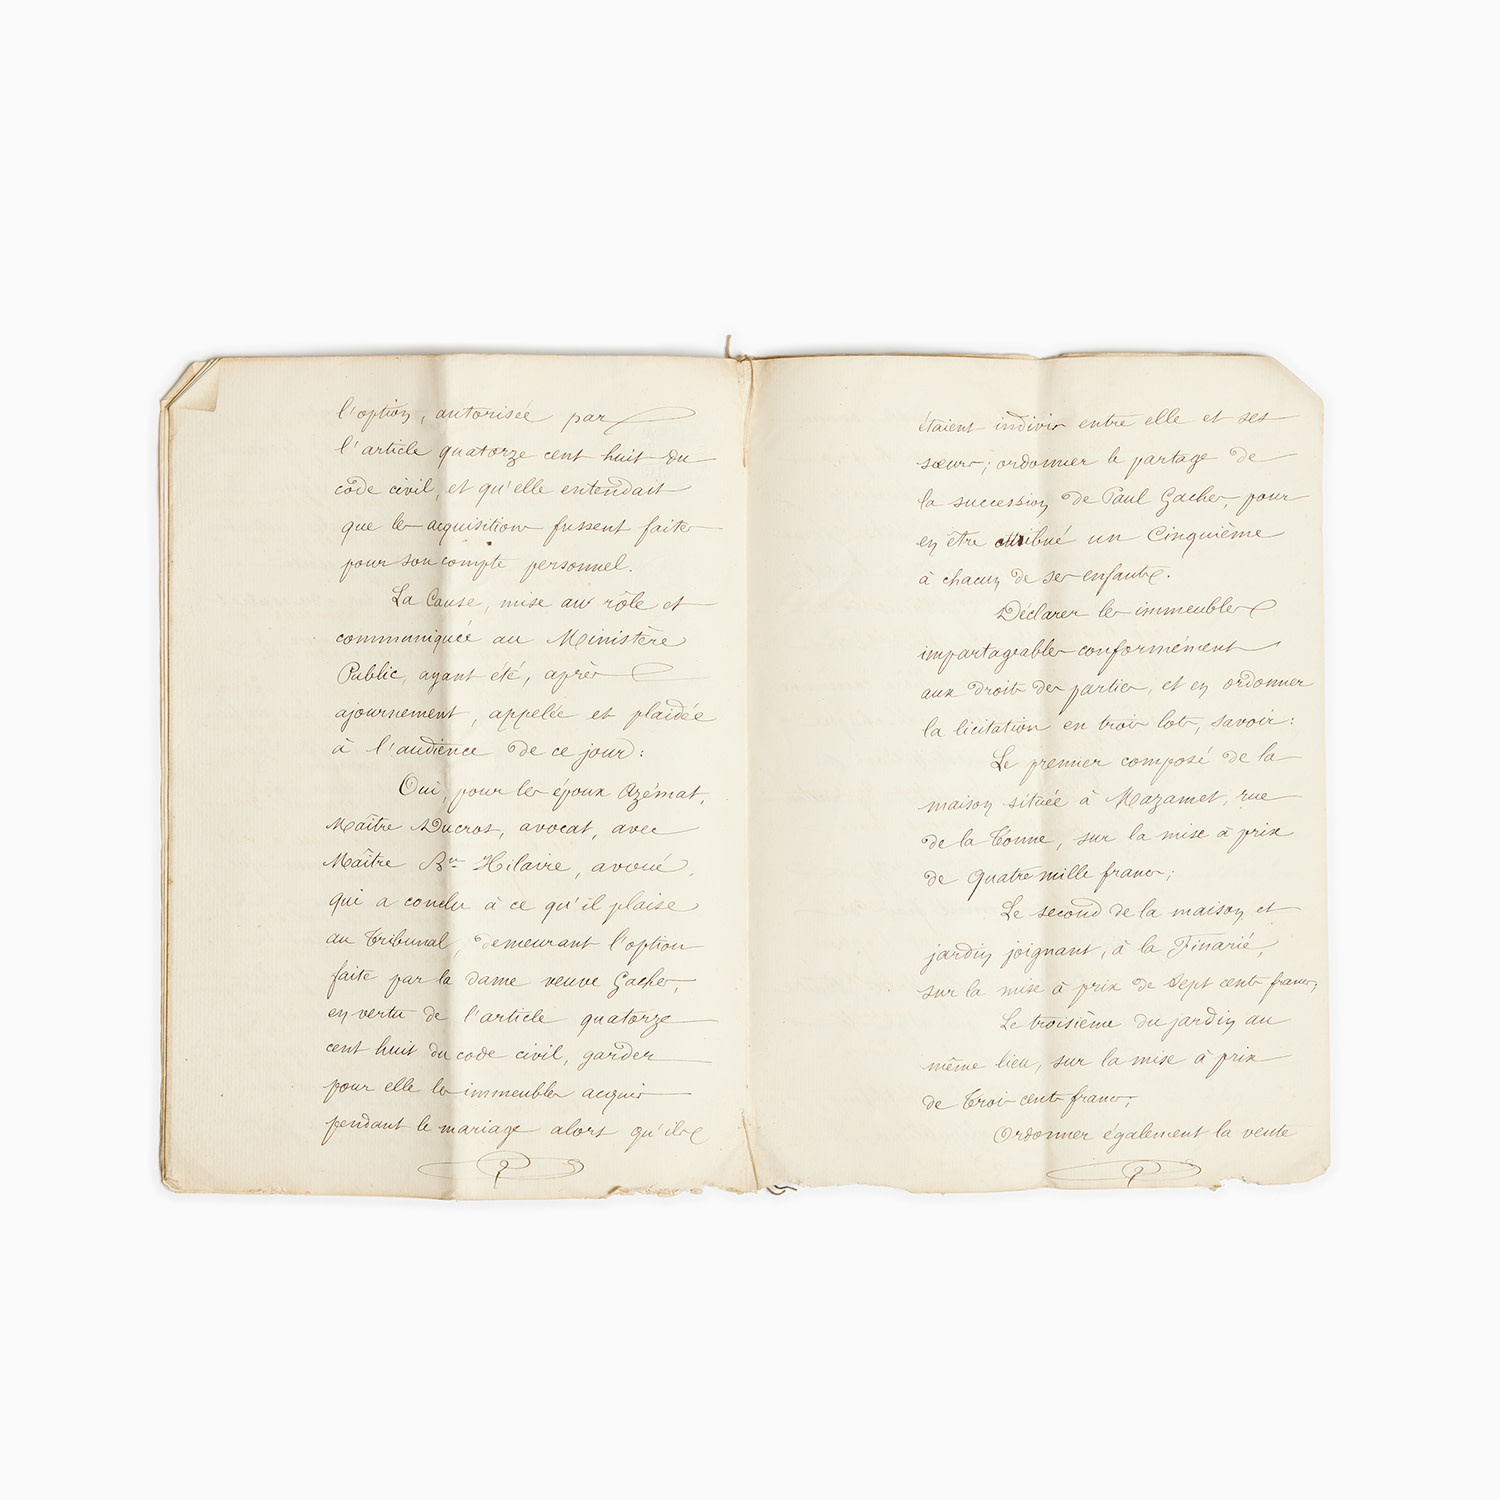 l'option, autorisée par
l'article quatorze cent huit du
code civil, et qu'elle entendait
que les acquisitions fussent faites
pour son compte personnel.
La Cause, mise au rôle et
communiquée au Ministère
Public, ayant été, après
ajournement, appelée et plaidée
à l'audience de ce jour:
Oui, pour les époux Azémat,
Maître Ducros, avocat, avec
Maître Bre Hilaire, avoué,
qui a conclu à ce qu'il plaise
au Tribunal, demeurant l'option
faite par la dame veuve Gacher,
en vertu de l'article quatorze
cent huit du code civil, garder
pour elle les immeubles acquis
pendant le mariage alors qu'ils
étaient indivis entre elle et ses
sœurs; ordonner le partage de
la succession de Paul Gacher, pour
en être attribué un Cinquième
à chacun de ses enfants.
Déclarer les immeubles
impartageables conformément
aux droits des parties, et en ordonner
la licitation en trois lots, savoir:
Le premier composé de la
maison située à Mazamet, rue
de la Tonne, sur la mise à prix
de Quatre mille francs;
Le second de la maison et
jardin joignant, à la Finarié,
sur la mise à prix de Sept cents francs,
Le troisième du jardin au
même lieu, sur la mise à prix
de Trois cents francs;
Ordonner également la vente